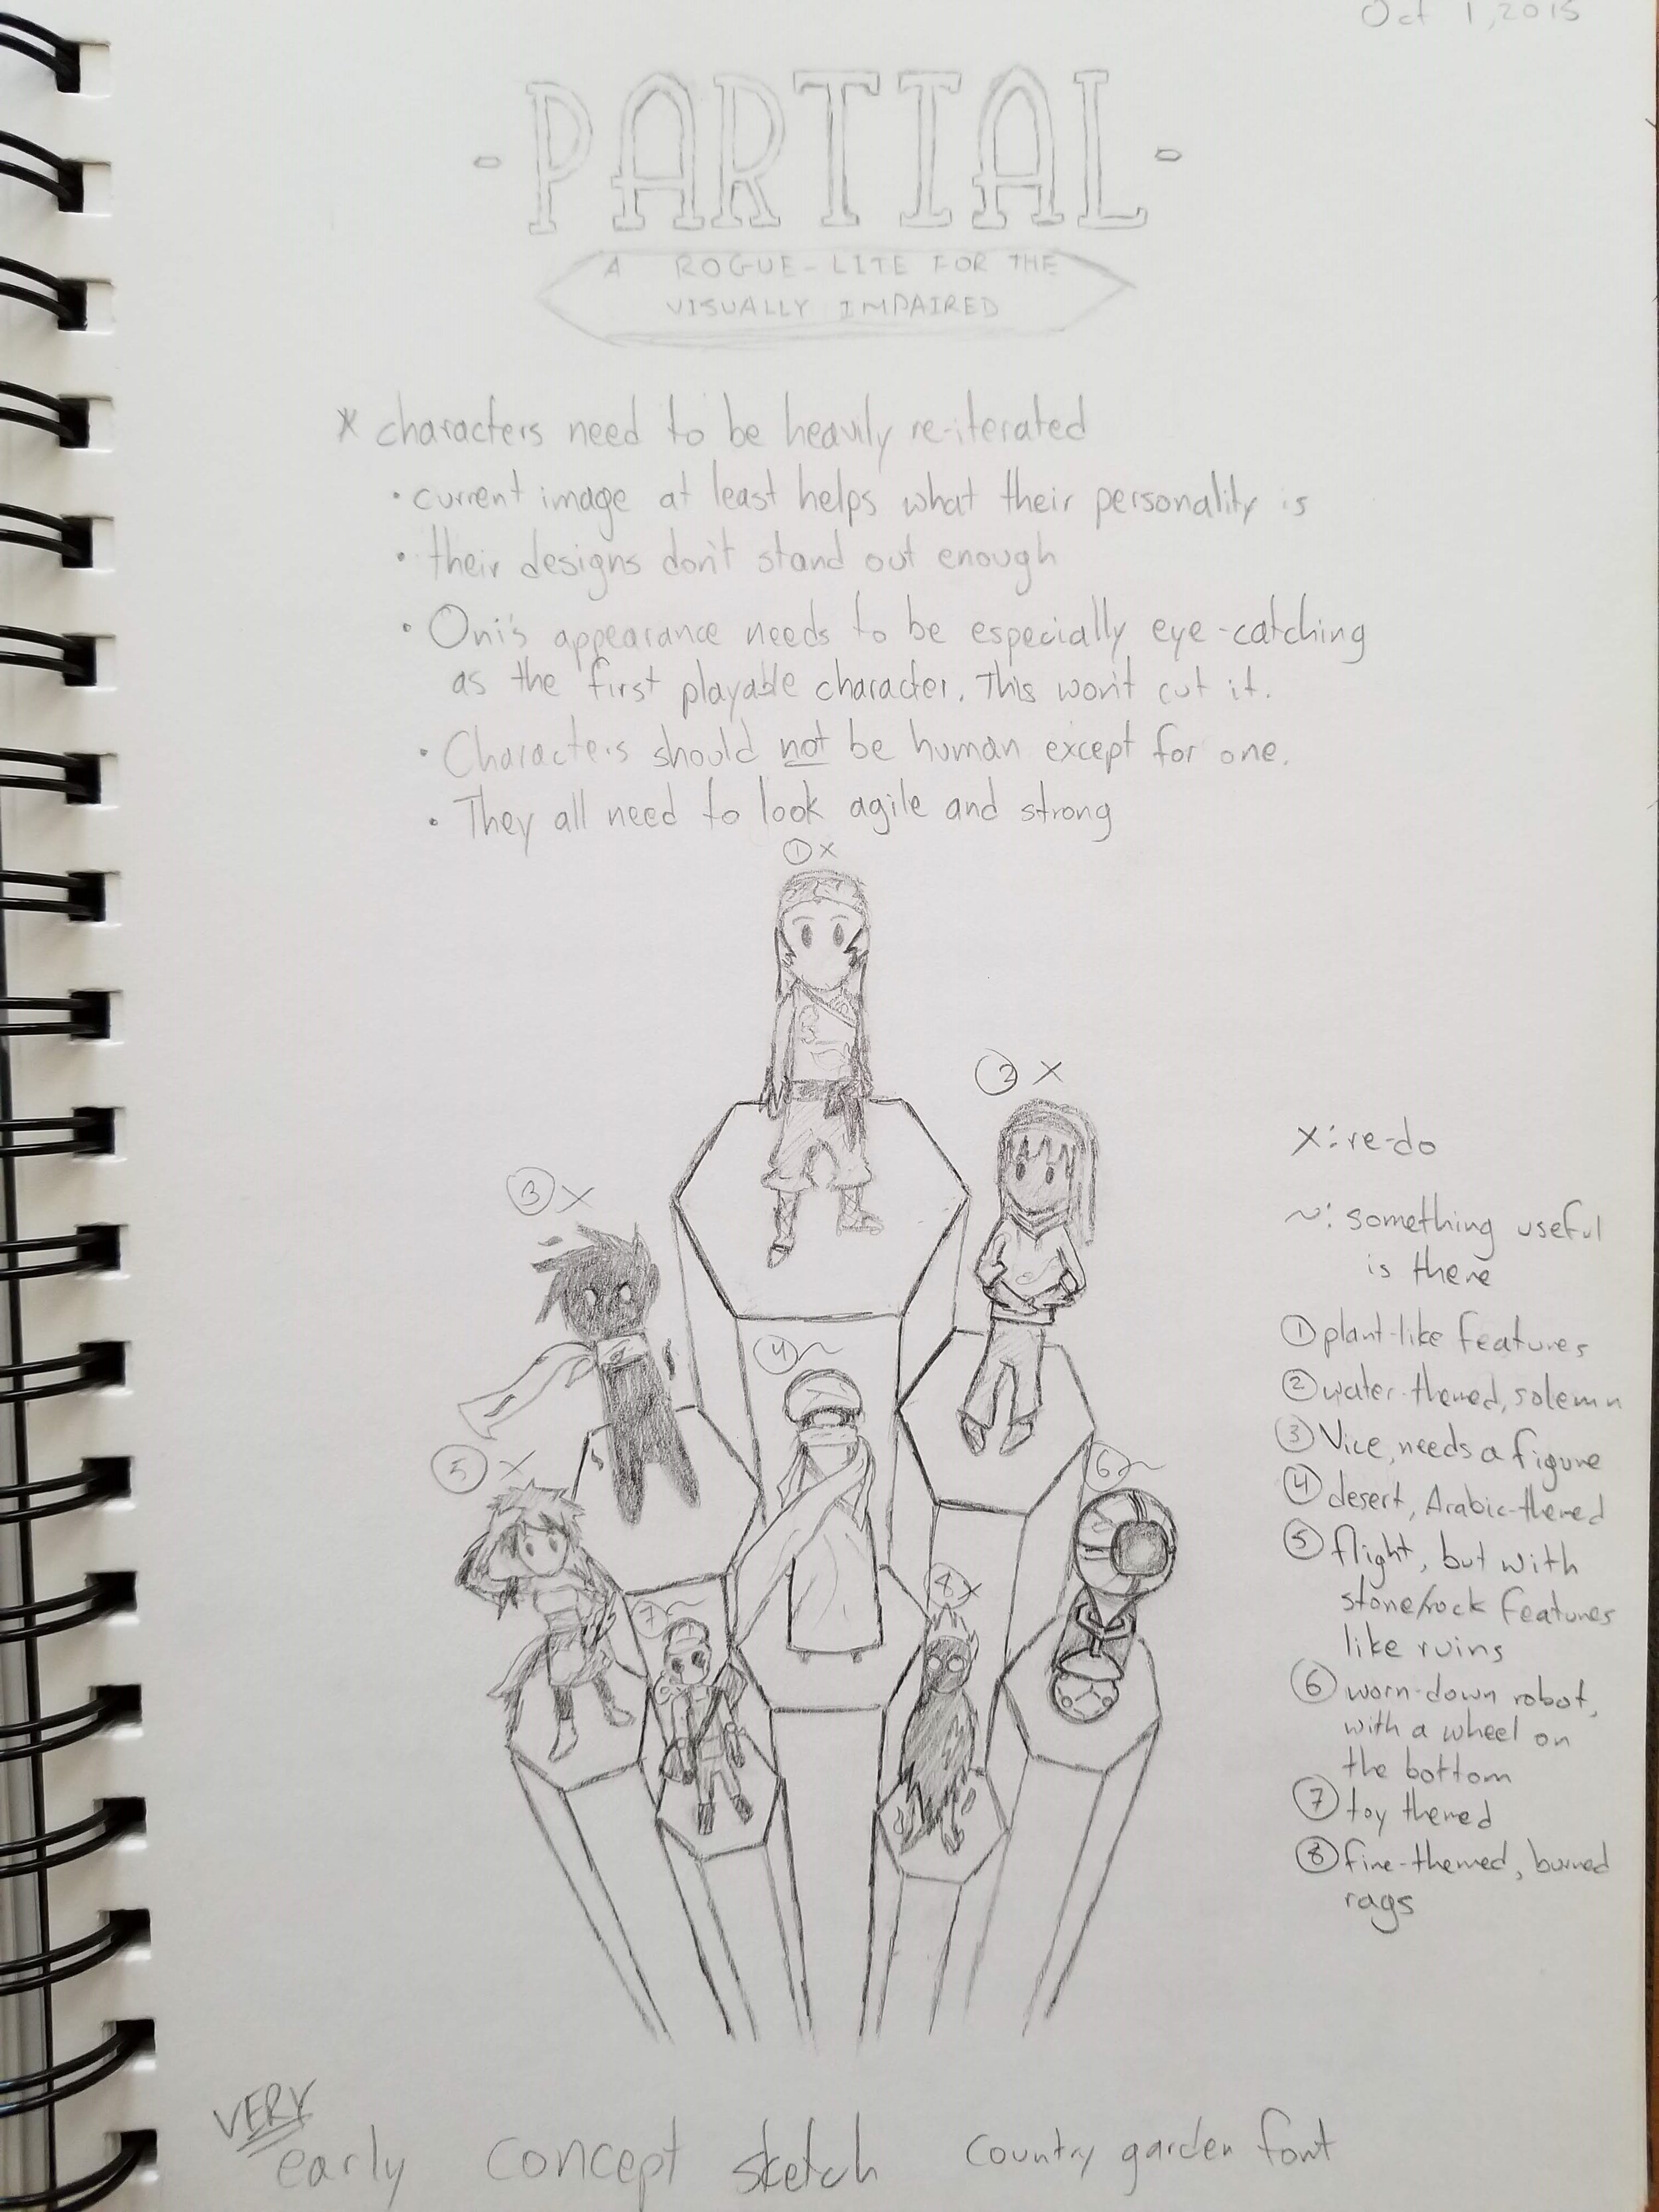 Oct 1, 2015
-PARTIAL-
A ROGUE-LITE FOR THE
VISUALLY IMPAIRED
* characters need to be heavily re-iterated
• current image at least helps what their personality is
• their designs don't stand out enough
• Oni's appearance needs to be especially eye-catching
as the first playable character. This won't cut it.
• Characters should not be human except for one.
• They all need to look agile and strong
① x
② x
③ x
④ ~
⑤ x
⑥ ~
⑦ ~
⑧ x
x: re-do
~: something useful
is there
① plant-like features
② water-themed, solemn
③ Vice, needs a figure
④ desert, Arabic-themed
⑤ flight, but with
stone/rock features
like ruins
⑥ worn-down robot,
with a wheel on
the bottom
⑦ toy themed
⑧ fire-themed, burned
rags
VERY
early concept sketch country garden font